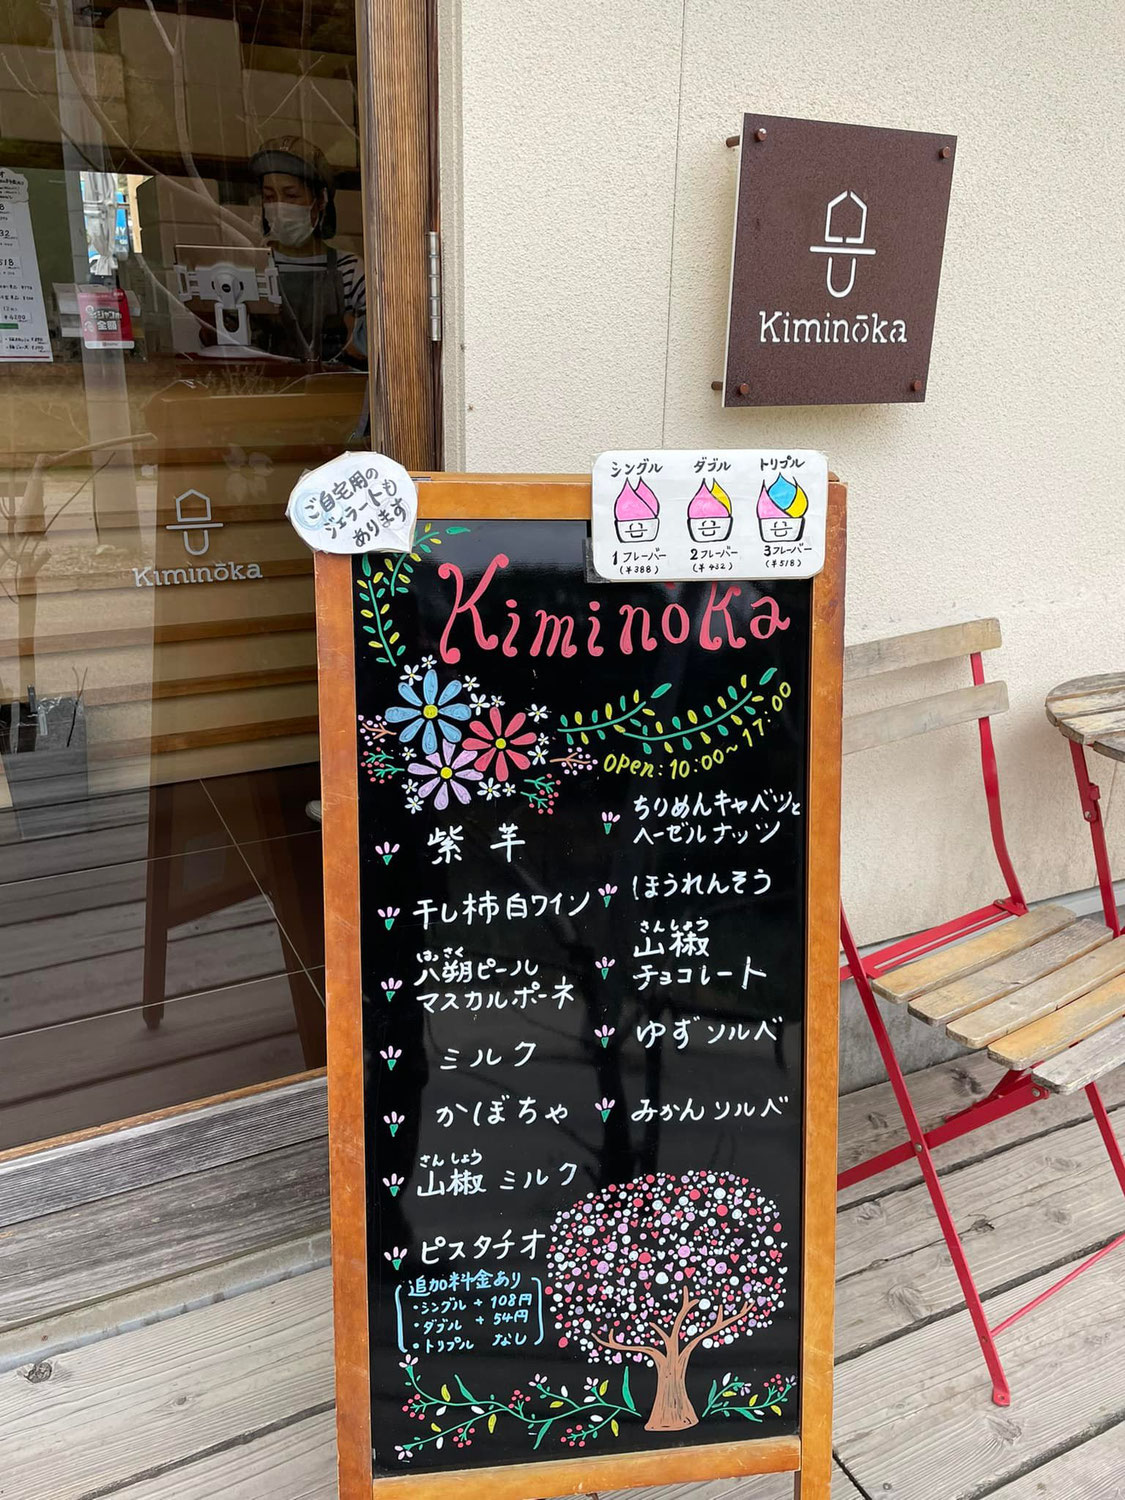 Kiminōka
シングル
ダブル
トリプル
1フレーバー
2フレーバー
3フレーバー
(¥388)
(¥432)
(¥518)
ご自宅用の
ジェラートも
あります
Kiminōka
Kiminōka
open:10:00~17:00
紫芋
干し柿白ワイン
はっさく
八朔ピール
マスカルポーネ
ミルク
かぼちゃ
さんしょう
山椒ミルク
ピスタチオ
追加料金あり
・シングル + 108円
・ダブル + 54円
・トリプル なし
ちりめんキャベツと
ヘーゼルナッツ
ほうれんそう
さんしょう
山椒
チョコレート
ゆずソルベ
みかんソルベ